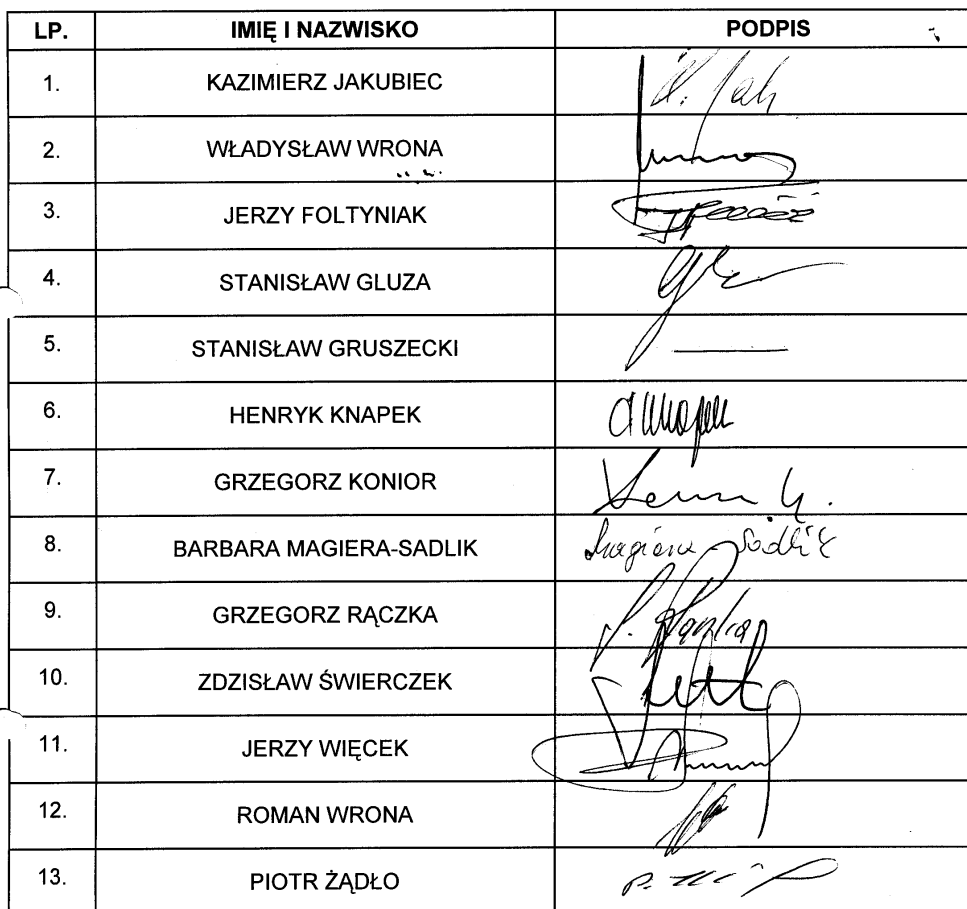 LP. IMIĘ I NAZWISKO PODPIS
1. KAZIMIERZ JAKUBIEC K. Jak
2. WŁADYSŁAW WRONA
3. JERZY FOLTYNIAK
4. STANISŁAW GLUZA
5. STANISŁAW GRUSZECKI
6. HENRYK KNAPEK HKnapek
7. GRZEGORZ KONIOR
8. BARBARA MAGIERA-SADLIK Magiera Sadlik
9. GRZEGORZ RĄCZKA
10. ZDZISŁAW ŚWIERCZEK
11. JERZY WIĘCEK
12. ROMAN WRONA
13. PIOTR ŻĄDŁO